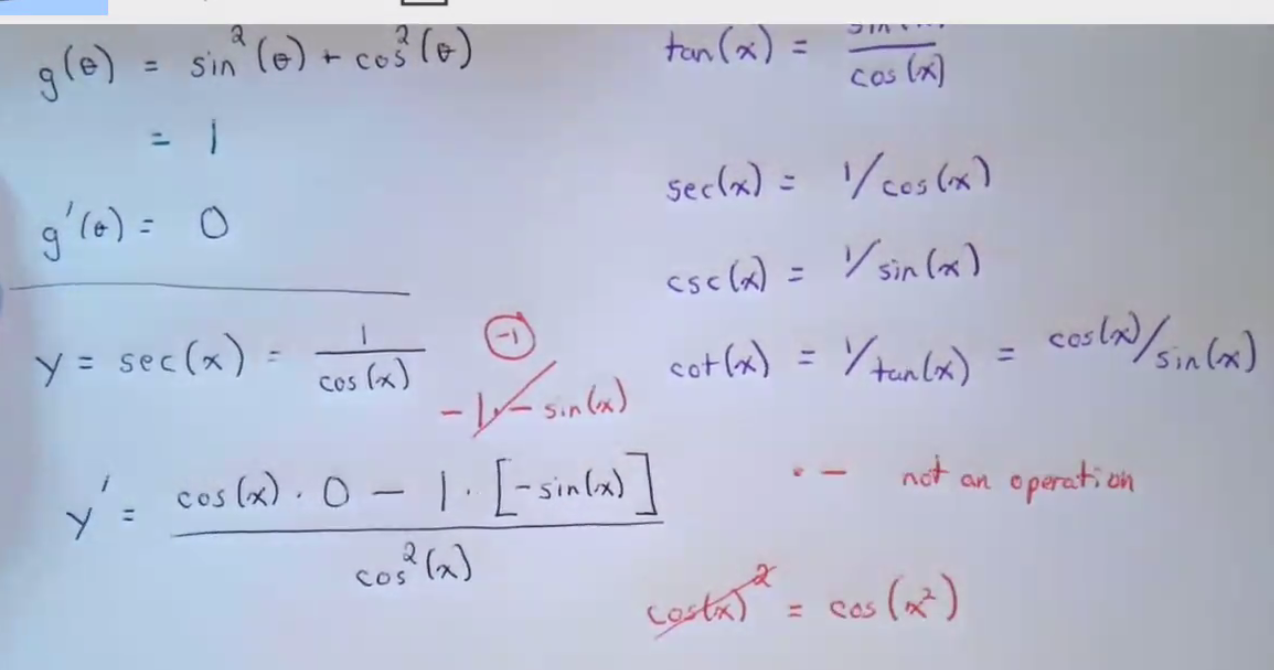 g(θ) = sin²(θ) + cos²(θ)
= 1
g'(θ) = 0
y = sec(x) = 1/cos(x)
(-1)
-1·-sin(x)
y' = cos(x)·0 - 1·[-sin(x)] / cos²(x)
tan(x) = / cos(x)
sec(x) = 1/cos(x)
csc(x) = 1/sin(x)
cot(x) = 1/tan(x) = cos(x)/sin(x)
· - not an operation
cos(x)² = cos(x²)